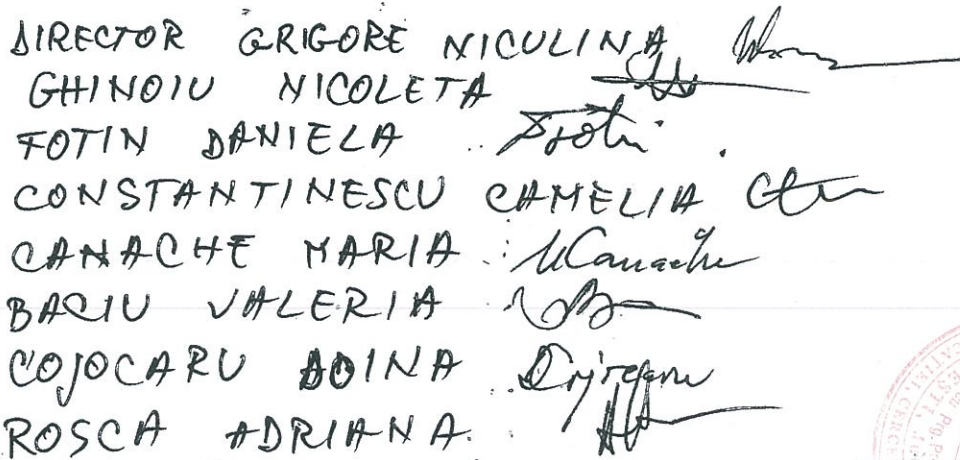 DIRECTOR GRIGORE NICULINA
GHINOIU NICOLETA
FOTIN DANIELA
CONSTANTINESCU CAMELIA
CANACHE MARIA
BACIU VALERIA
COJOCARU ADINA
ROSCA ADRIANA